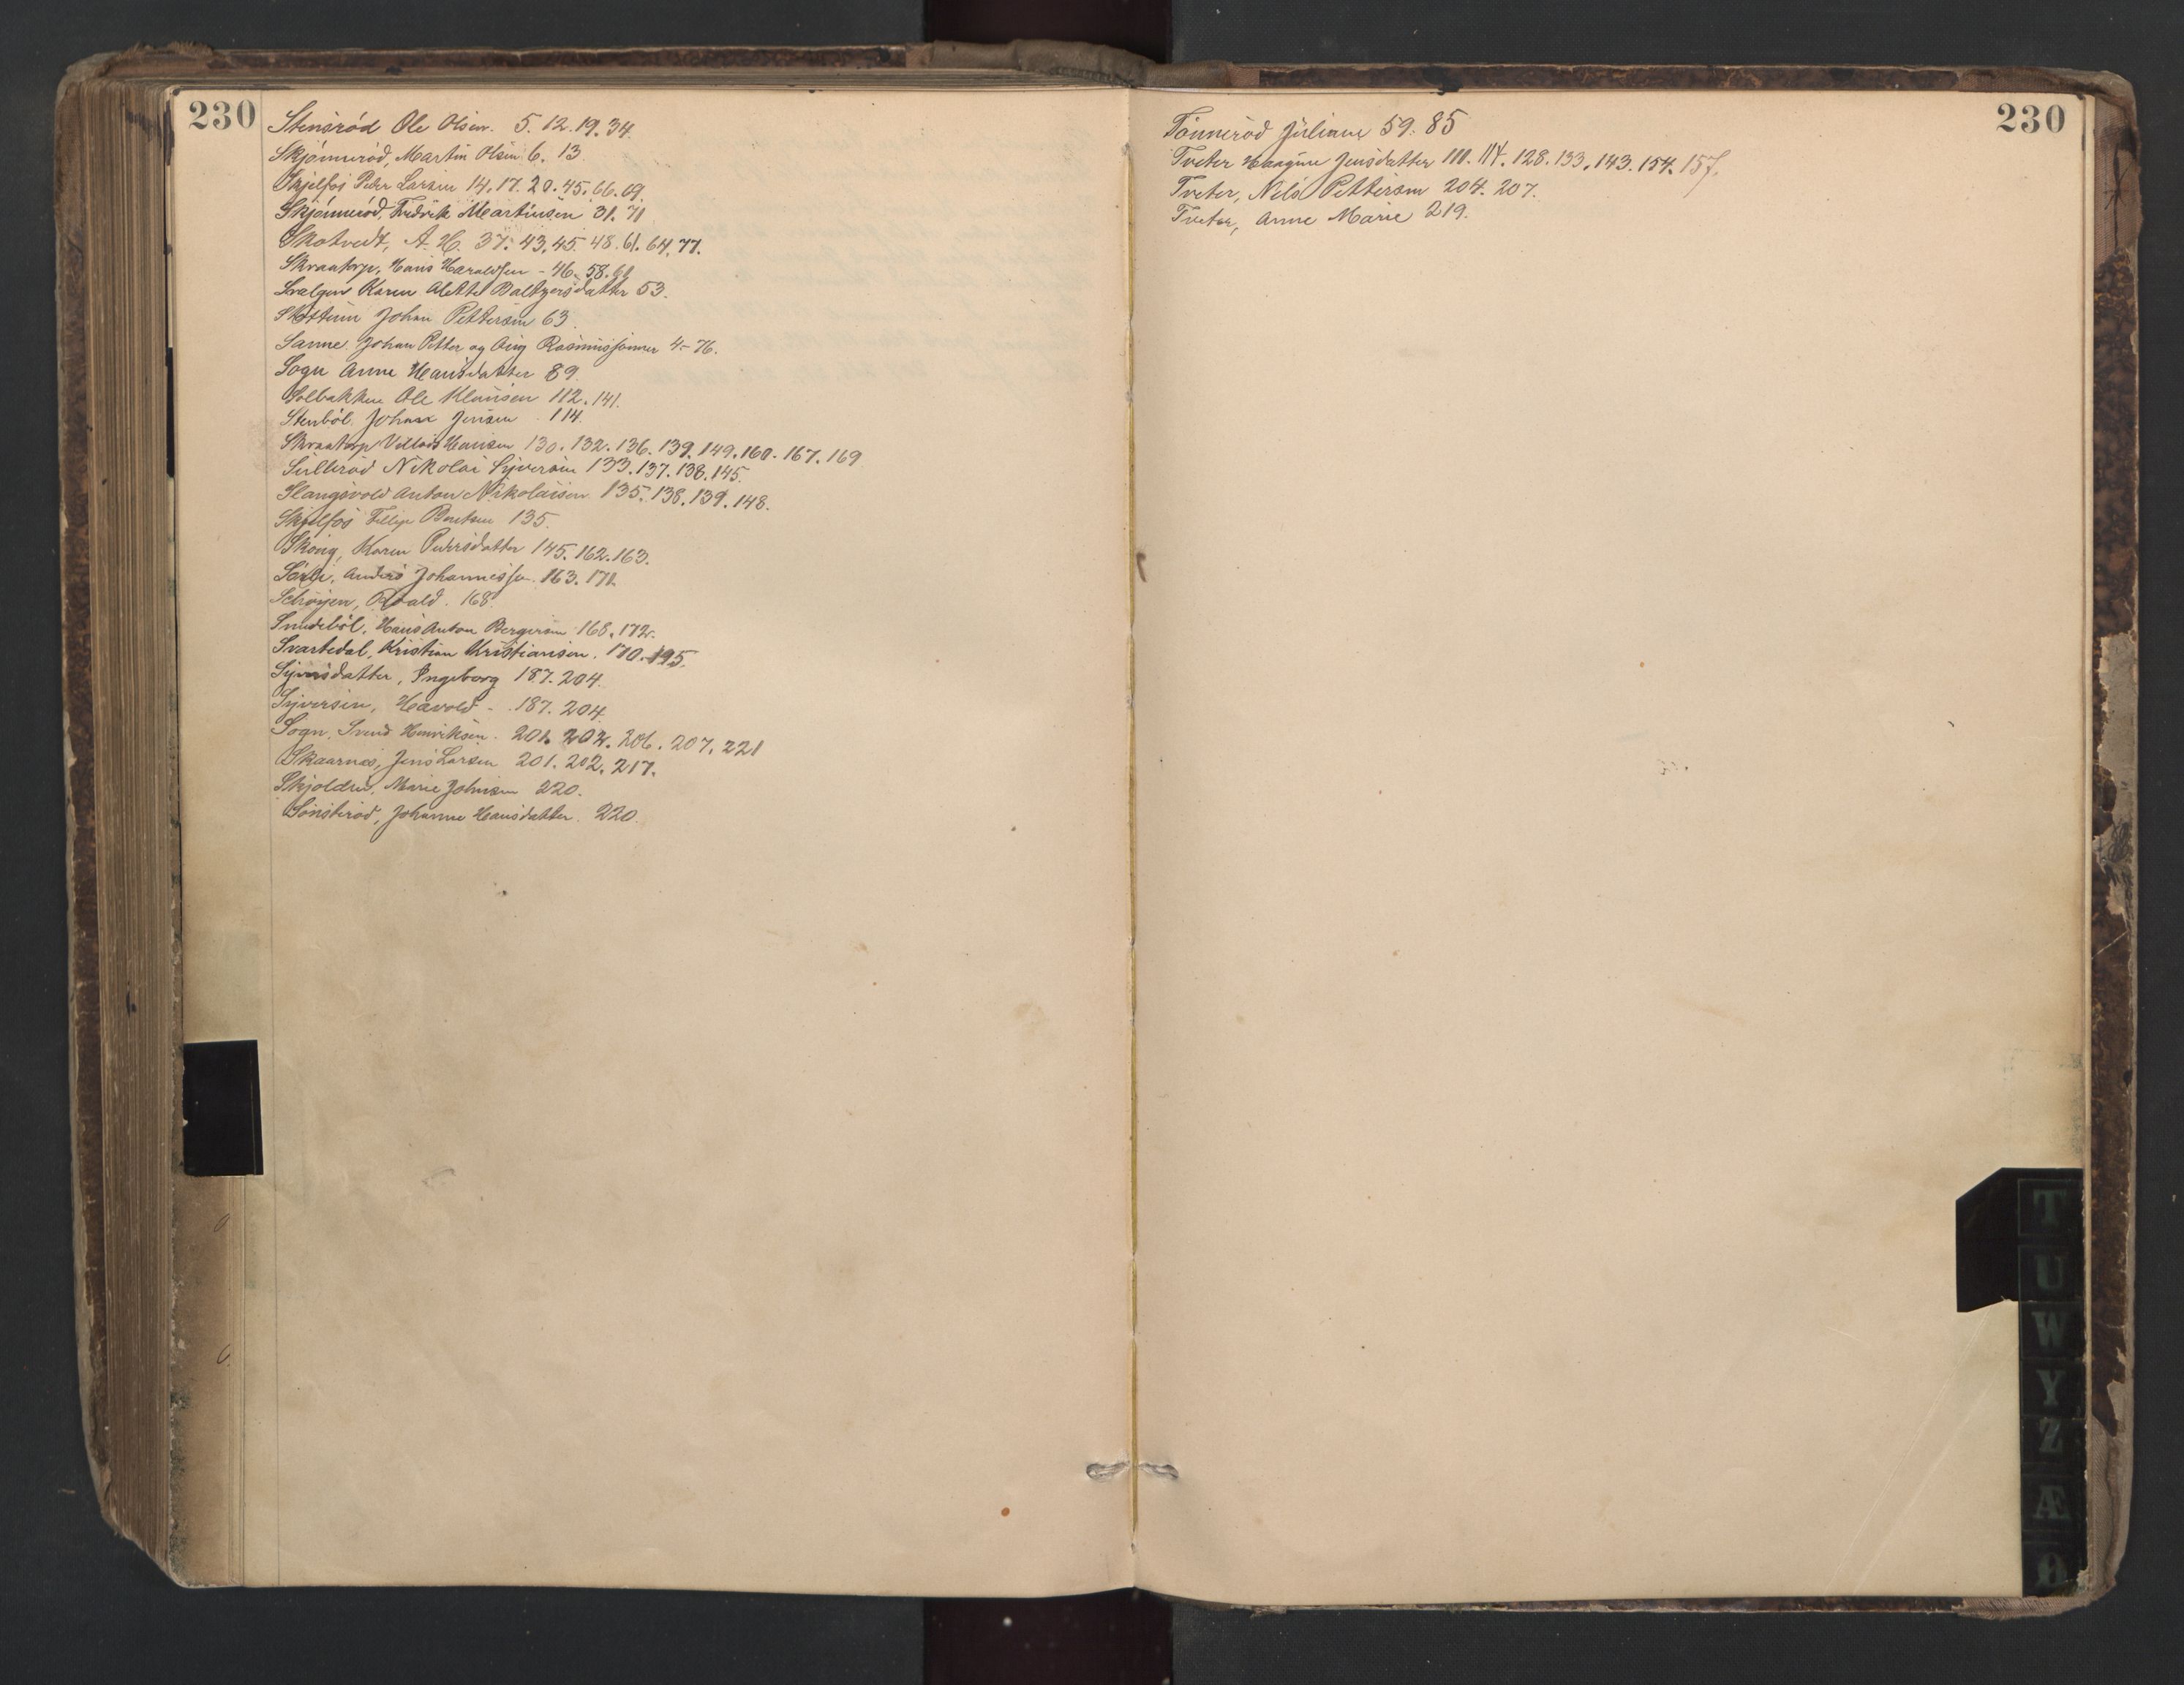 230
Stensröd Ole Olsen. 5. 12. 19. 34.
Skjönneröd, Martin Olsen 6. 13
Skjelfos Peder Larsen 14. 17. 20. 45. 66. 69.
Skjönneröd, Fredrik Martinsen 31. 71
Skotvedt, A. H. 37. 43. 45. 48. 61. 64. 77.
Skraatorp, Hans Haraldsen - 46. 58. 61
Karen Alette Baltzersdatter 53.
Johan Pettersen 63
Sanne Johan Petter og Rasmussönner 4 - 76.
Sogn Anne Hansdatter 89.
Solbakken Ole Klausen 112. 141.
Stenböl. Johan Jensen . 114.
Skraatorp Hansen 130. 132. 136. 139. 149. 160. 167. 169
Sulleröd Nikolai Syversen 133. 137. 138. 145.
Slangsvold Anton Nikolaisen 135. 138. 139. 148.
Skjelfos Fillip Berntsen 135.
Skoug, Karen Pedersdatter 145. 162. 163.
Anders Johannessen. 163. 171.
Schröyen, Roald. 168.
Smedeböl, Hans Anton Bergersen 168. 172.
Svartedal, Kristian Kristiansen. 170. 195.
Syversdatter, Ingeborg 187. 204.
Syversen, Havold - . 187. 204.
Sogn. Svend Henriksen. 201. 202. 206. 207. 221
Skaarnes, Jens Larsen 201. 202. 217.
Marie Johnsen 220.
Sönsteröd, Johanne Hansdatter. 220.
230
Tönneröd Juliane 59. 85
Tveter Haagine Jensdatter 111. 114. 128. 133. 143. 154. 157.
Tveter, Nels Pettersen 204. 207.
Tveter, Anne Marie 219.
T
U
W
Y
Z
Æ
Ø